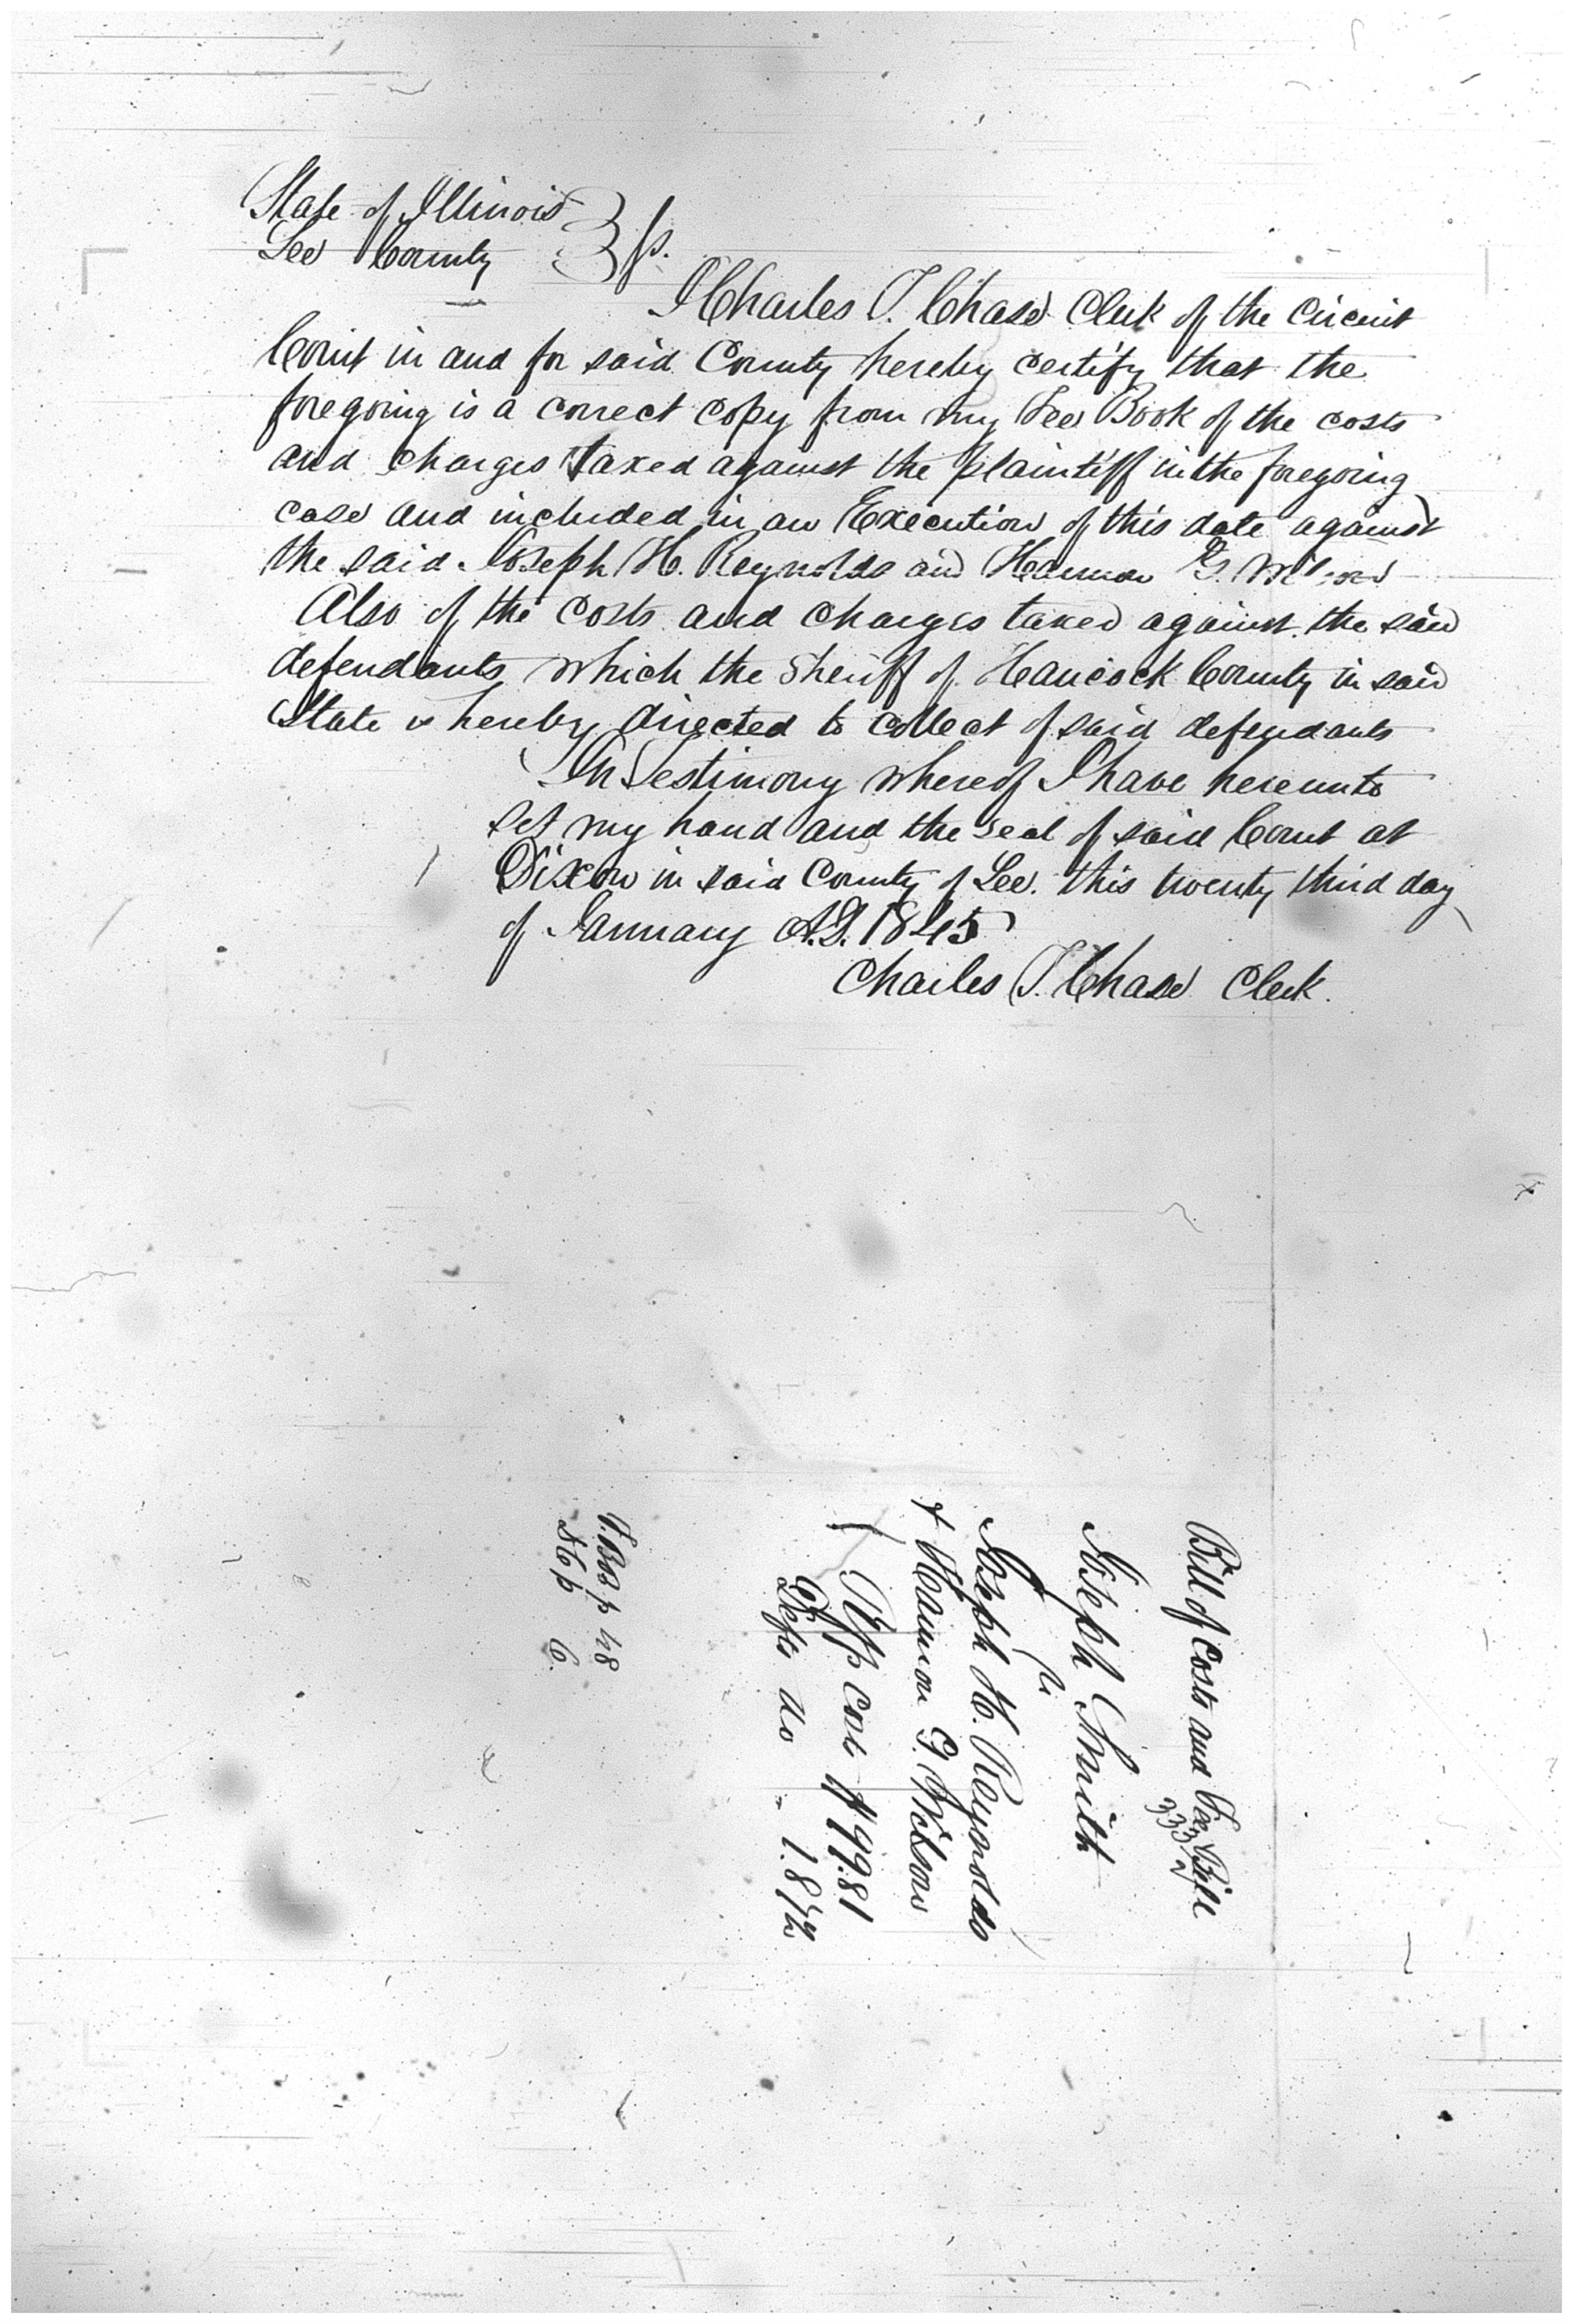 State of Illinois } ss.
Lee County
I Charles T. Chase Clerk of the Circuit
Court in and for said County hereby certify that the
foregoing is a correct copy from my Fee Book of the costs
and charges taxed against the plaintiff in the foregoing
case and included in an Execution of this date against
the said Joseph H. Reynolds and Harmon G. Wilson
Also of the costs and charges taxed against the said
defendants which the Sheriff of Hancock County in said
State is hereby directed to collect of said defendants
In Testimony whereof I have hereunto
set my hand and the seal of said Court at
Dixon in said County of Lee. this twenty third day
of January A.D. 1845
Charles T. Chase Clerk.
Bill of Costs and Fee Bill
Joseph Smith
vs
Joseph H. Reynolds
& Harmon G. Wilson
Plffs Cost $49.81
Defts do 1.81½
F.B.B p 48
p 6.